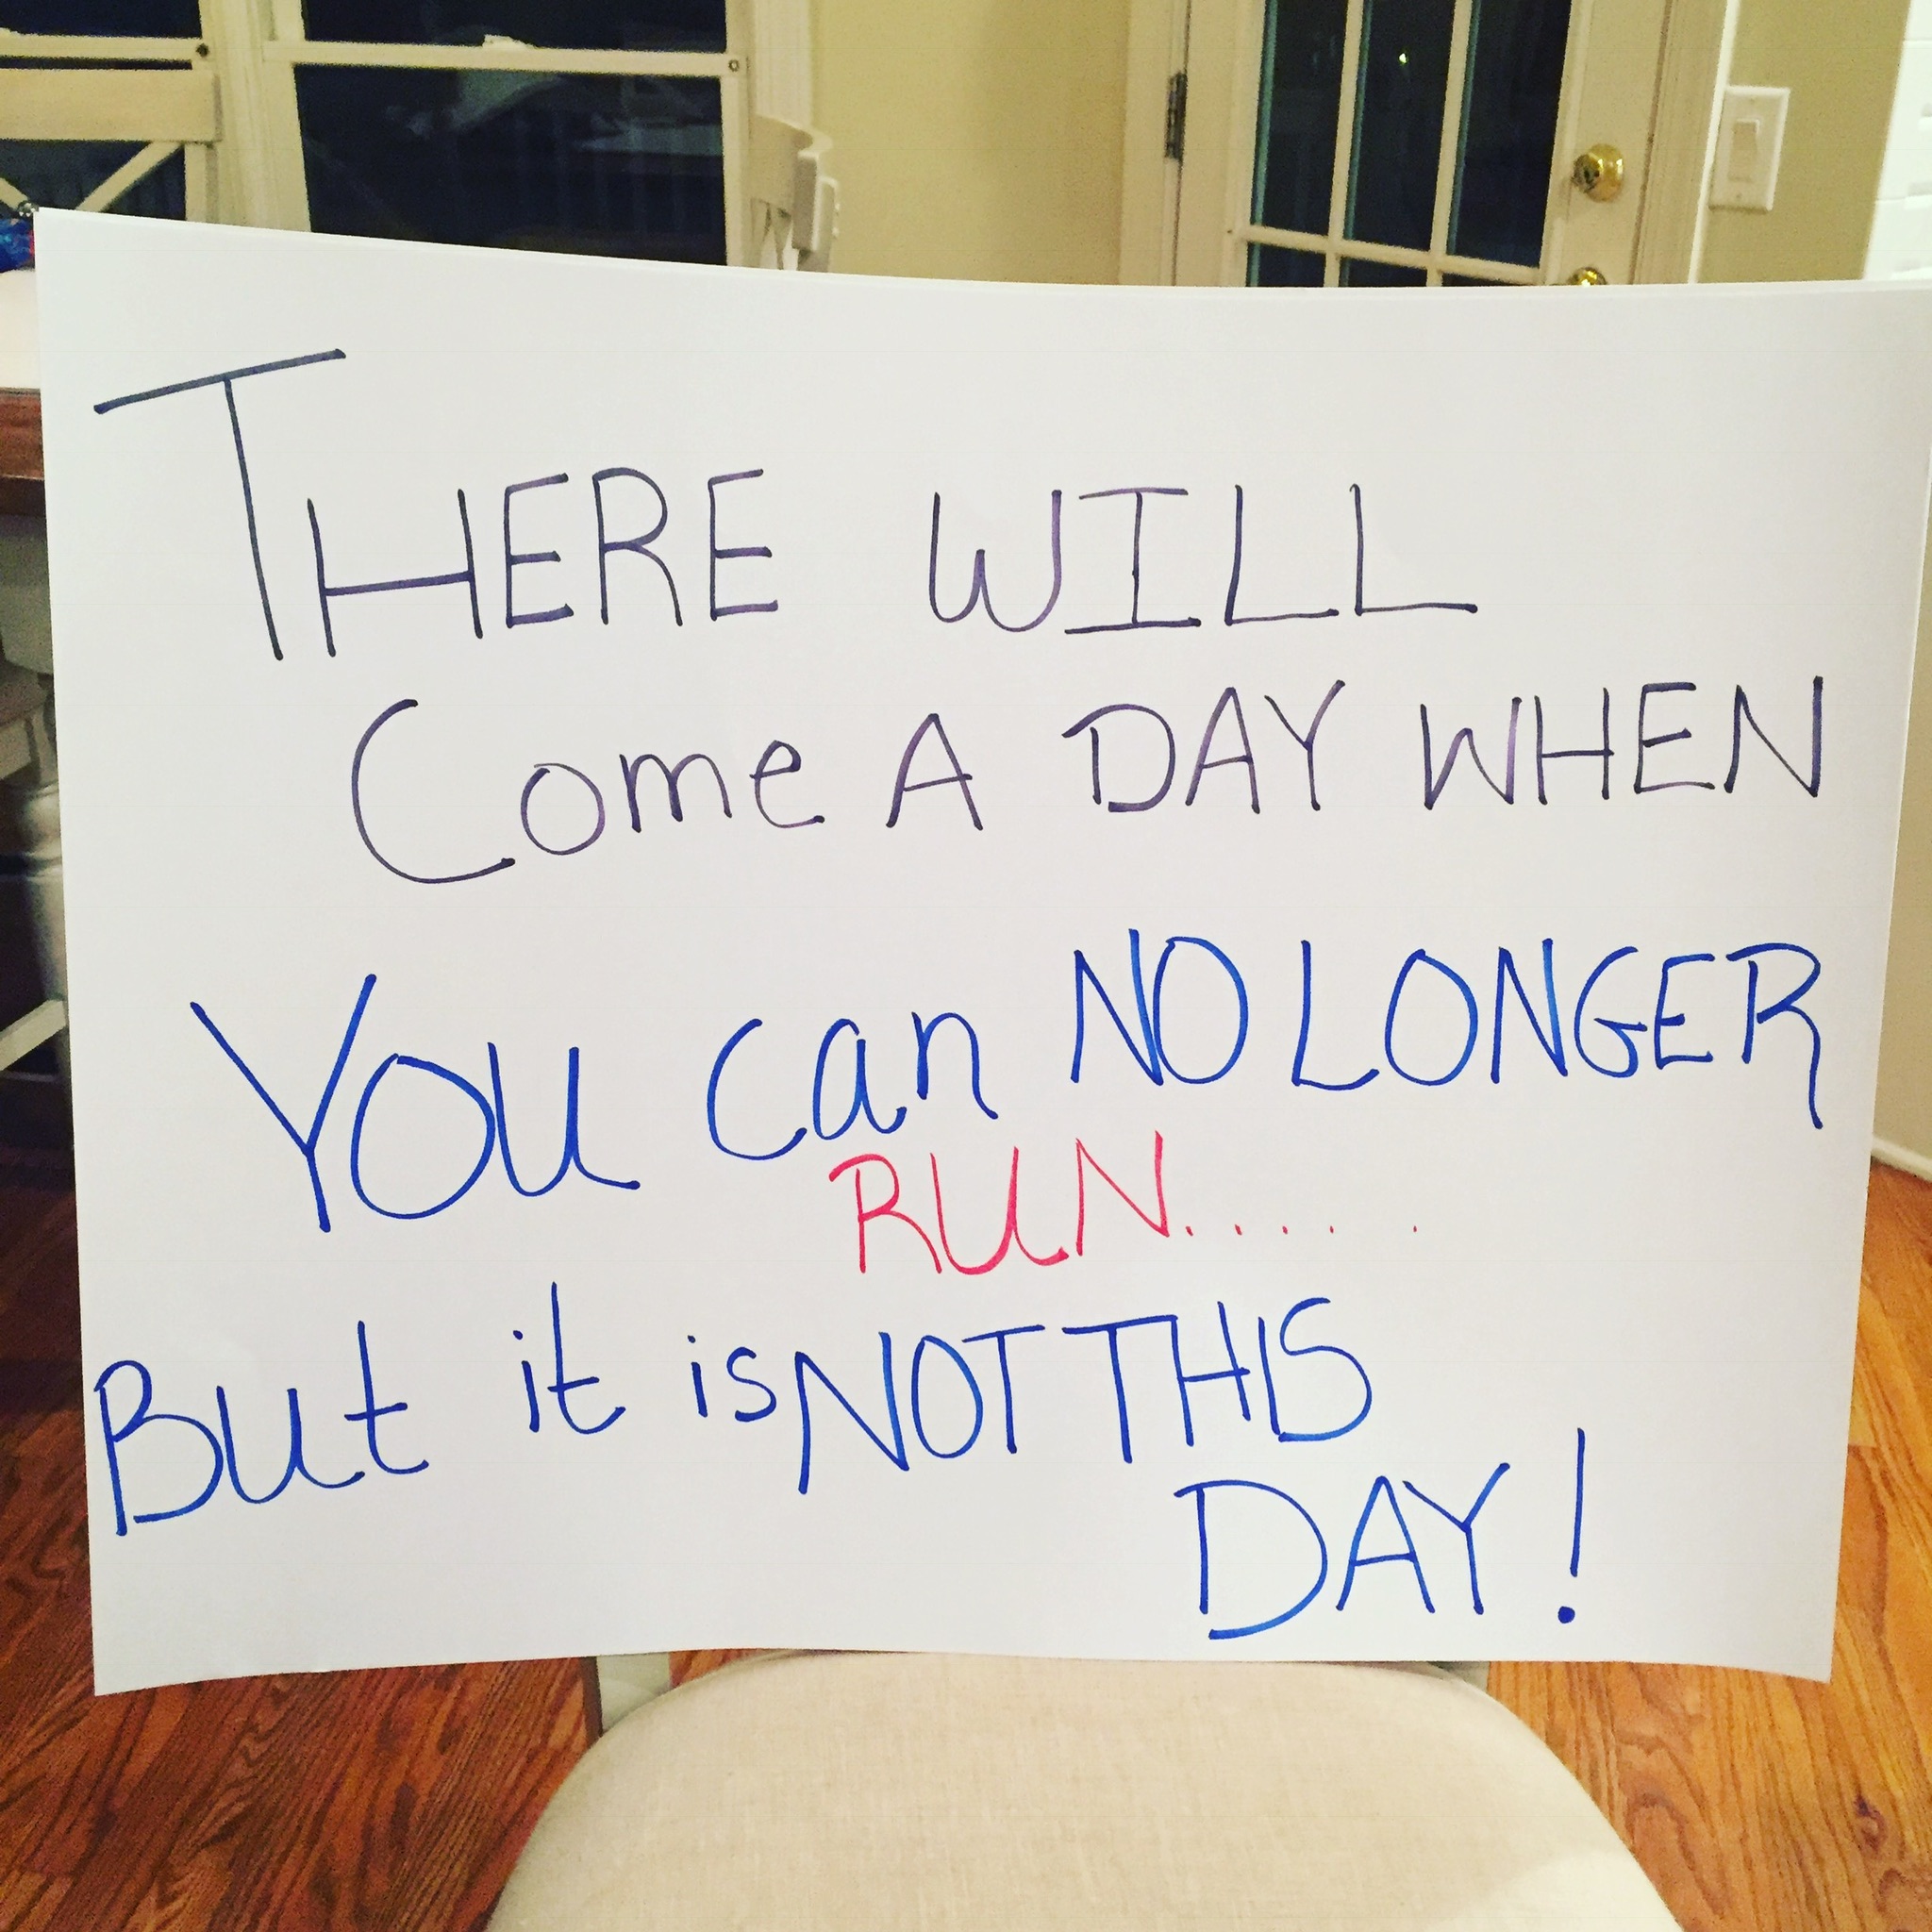 THERE WILL
Come A DAY WHEN
YOU can NO LONGER
RUN......
But it is NOT THIS
DAY!